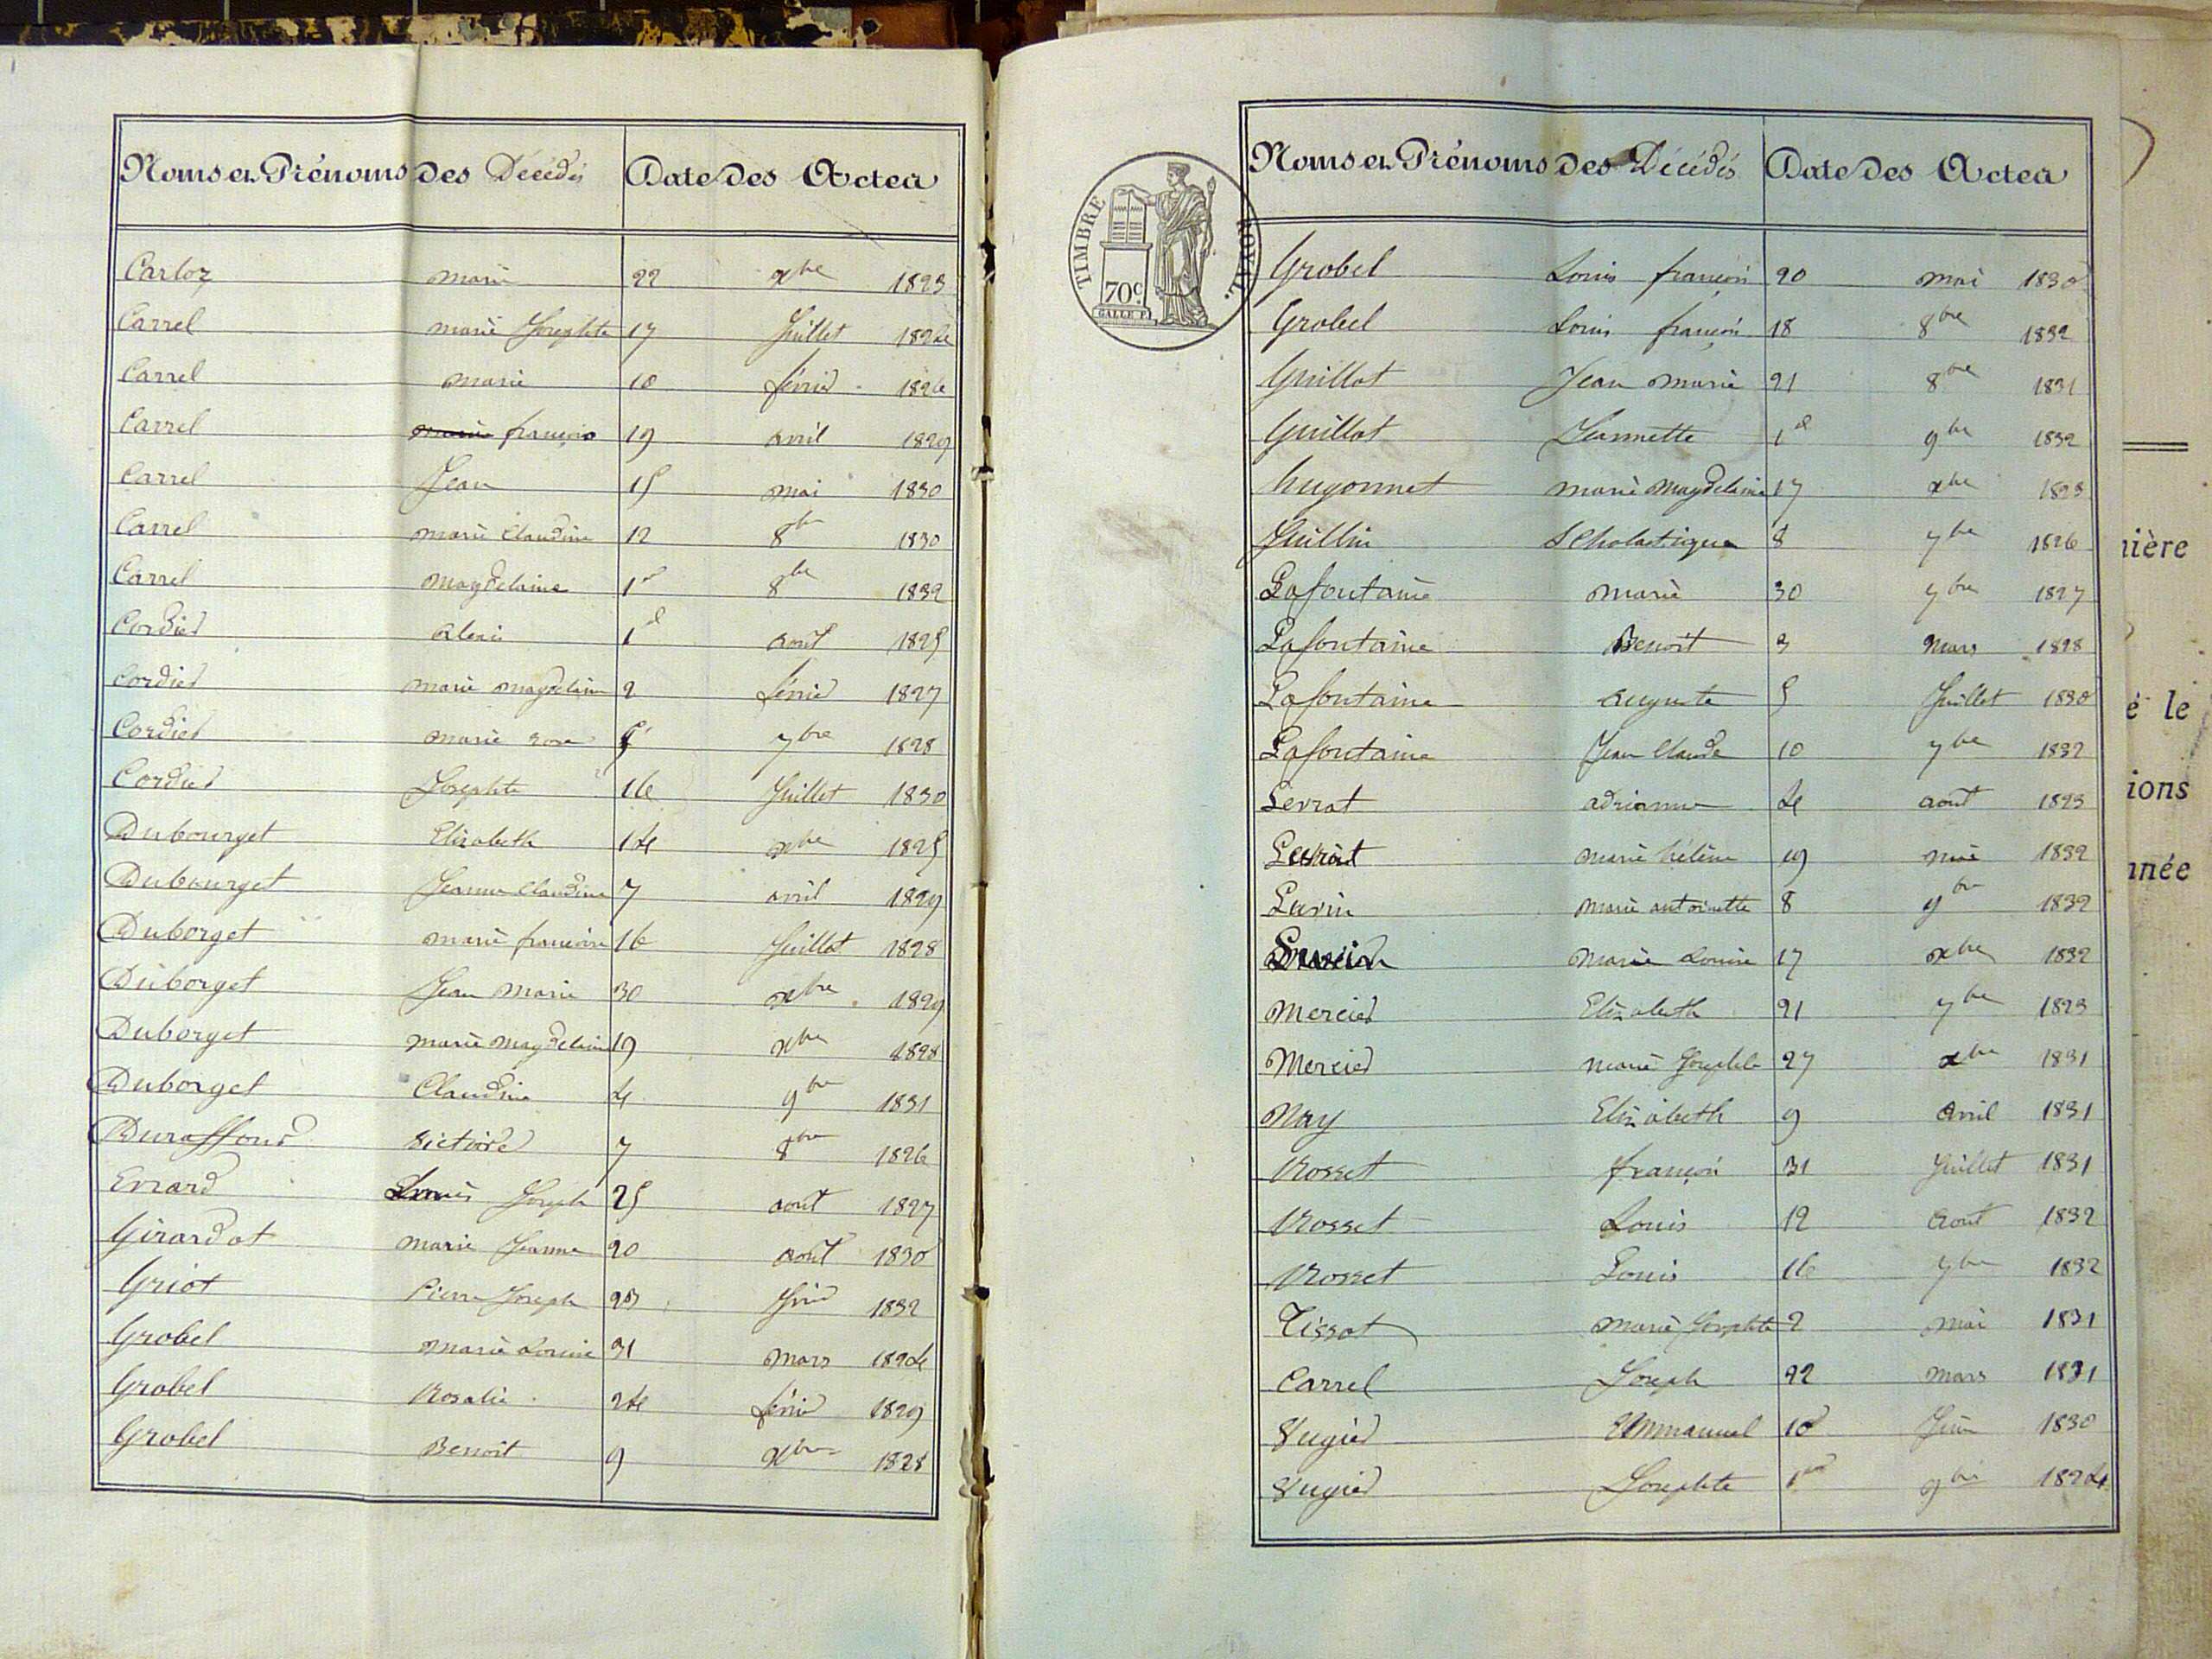 Noms et Prénoms des Décédés Date des Actes
Carloz marie 22 xbre 1823
Carrel marie Josephte 17 Juillet 1824
Carrel marie 10 février 1826
Carrel marie françois 19 avril 1829
Carrel Jean 15 mai 1830
Carrel marie Claudine 12 8bre 1830
Carrel magdelaine 1er 8bre 1832
Cordier alexis 1er août 1825
Cordier marie magdelaine 2 février 1827
Cordier marie rose 7bre 1828
Cordier Josephte 16 Juillet 1830
Dubourget Elizabeth 14 xbre 1825
Dubourget Jeanne Claudine 7 avril 1829
Duborget marie françoise 16 Juillet 1828
Duborget Jean Marie 30 xbre 1829
Duborget marie magdelaine 19 xbre 1828
Duborget Claudine 4 9bre 1831
Duraffour victoire 7 8bre 1826
Evrard Louis Joseph 25 août 1827
Girardot marie Jeanne 20 août 1830
Griot Pierre Joseph 23 1832
Grobel marie Louise 31 mars 1824
Grobel Rosalie 24 février 1829
Grobel Benoit 9 xbre 1828
TIMBRE ROYAL.
70c
GALLE F.
Noms et Prénoms des Décédés Date des Actes
Grobel Louis françois 20 mai 1830
Grobel Louis françois 18 8bre 1832
Guillot Jean marie 21 8bre 1831
Guillot Jeannette 1er 9bre 1832
hugonnet marie magdelaine 17 xbre 1823
Guillin Scholastique 8 7bre 1826
Lafontaine marie 30 7bre 1827
Lafontaine Benoit 3 Mars 1828
Lafontaine auguste 5 Juillet 1830
Lafontaine Jean Claude 10 7bre 1832
Levrat adrianne 4 août 1823
Levrat marie hélène 19 mai 1832
Lavin marie antoinette 8 9bre 1832
marie Louise 17 xbre 1832
Mercier Elizabeth 21 7bre 1823
Mercier marie Josephte 27 xbre 1831
May Elizabeth 9 Avril 1831
Rosset françois 31 Juillet 1831
Rosset Louis 12 août 1832
Rosset Louis 16 7bre 1832
Tissot marie Josephte 2 mai 1831
Carrel Joseph 22 mars 1831
Vugier Emmanuel 10 Juin 1830
Vugier Josephte 1er 9bre 1824
nière
é le
ions
nnée